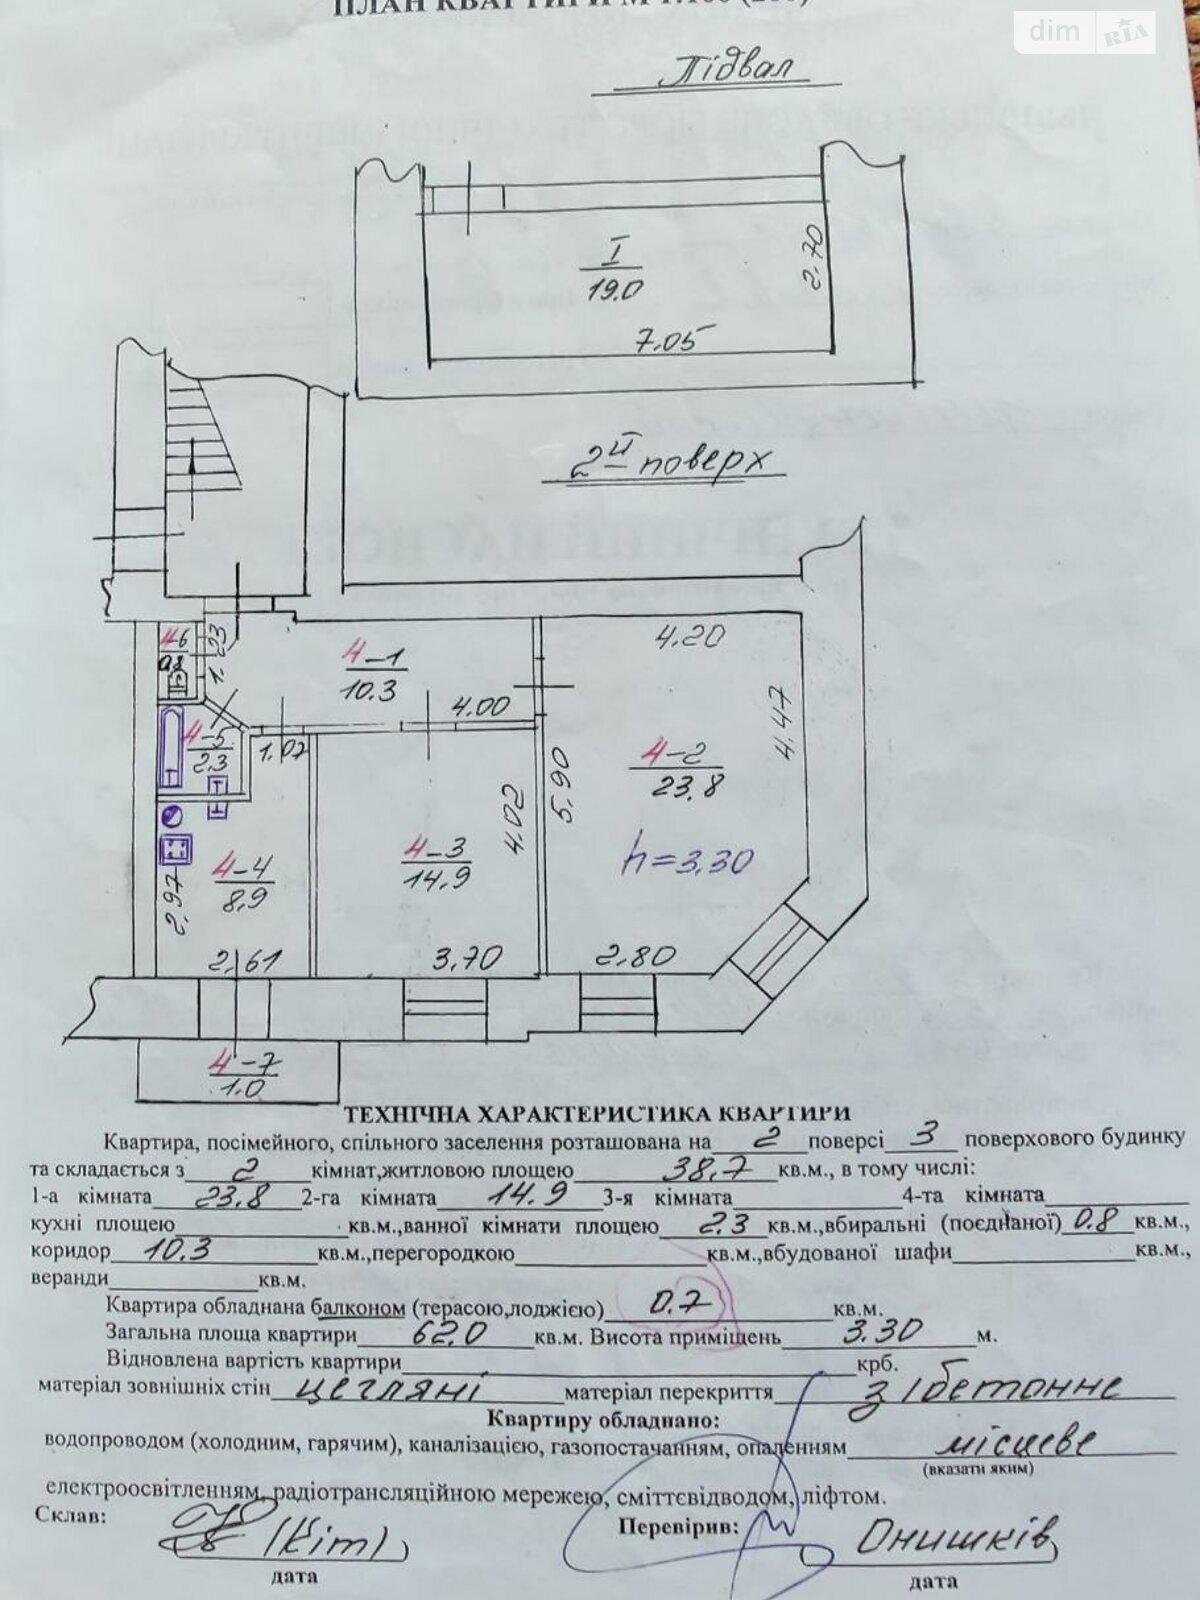 ПЛАН КВАРТИРИ М 1:100 (200)
dim RIA
Підвал
I
19.0
2.70
7.05
2й поверх
4-6
0.8
1.23
4-1
10.3
4.00
4.20
4.47
4-5
2.3
1.07
4-2
23.8
5.90
4.02
4-3
14.9
h=3.30
4-4
8,9
2,97
2,61
3.70
2.80
4-7
1.0
ТЕХНІЧНА ХАРАКТЕРИСТИКА КВАРТИРИ
Квартира, посімейного, спільного заселення розташована на 2 поверсі 3 поверхового будинку
та складається з 2 кімнат,житловою площею 38,7 кв.м., в тому числі:
1-а кімната 23.8 2-га кімната 14.9 3-я кімната 4-та кімната
кухні площею кв.м.,ванної кімнати площею 2.3 кв.м.,вбиральні (поєднаної) 0.8 кв.м.,
коридор 10.3 кв.м.,перегородкою кв.м.,вбудованої шафи кв.м.,
веранди кв.м.
Квартира обладнана балконом (терасою,лоджією) 0.7 кв.м.
Загальна площа квартири 62.0 кв.м. Висота приміщень 3.30 м.
Відновлена вартість квартири крб.
матеріал зовнішніх стін цегляні матеріал перекриття з/бетонне
Квартиру обладнано:
водопроводом (холодним, гарячим), каналізацією, газопостачанням, опаленням місцеве
(вказати яким)
електроосвітленням, радіотрансляційною мережею, сміттєвідводом, ліфтом.
Склав: (Кіт) Перевірив: Онишків
дата дата